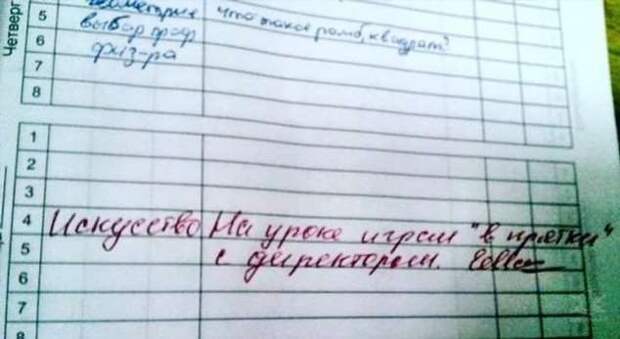 Четверг
5 геометрия что такое ромб, квадрат?
6 выбор проф
7 физ-ра
8
1
2
3
4 Искусство На уроке играл "в прятки"
5 с директором.
6
7
8